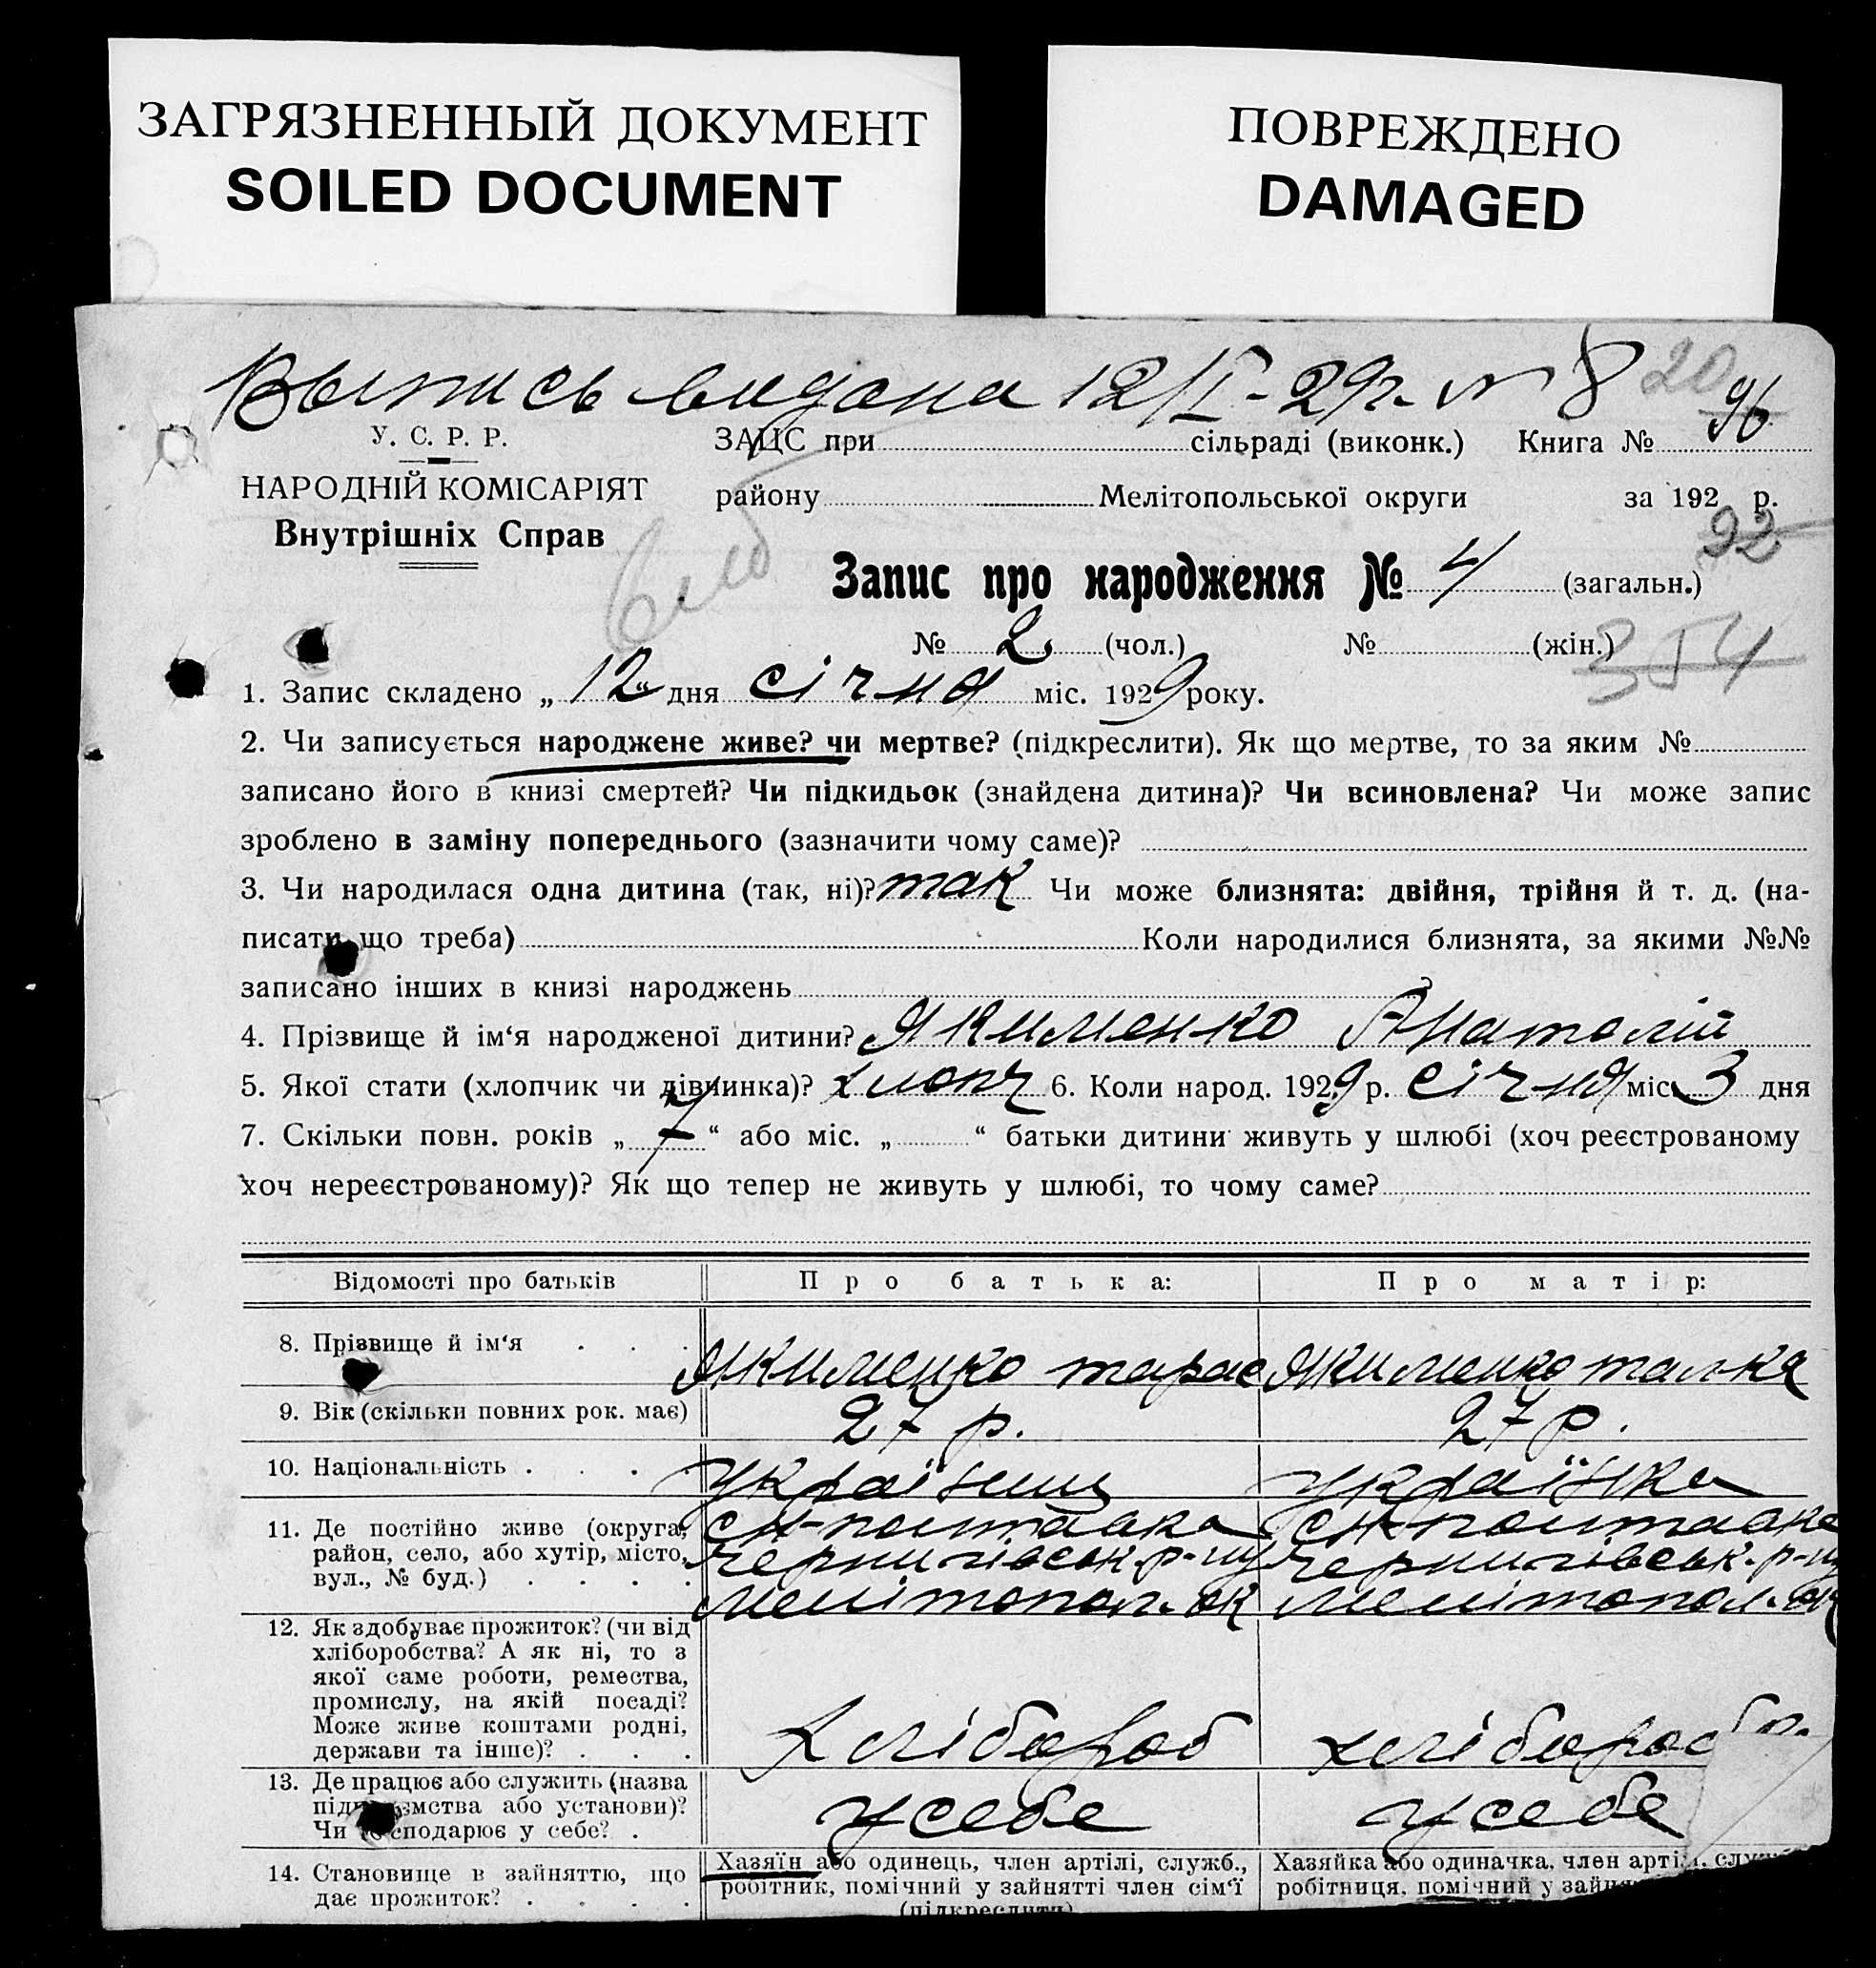 ЗАГРЯЗНЕННЫЙ ДОКУМЕНТ
SOILED DOCUMENT
ПОВРЕЖДЕНО
DAMAGED
Выпись видана 12/I-29г. № 8
20
96
У. С. Р. Р.
НАРОДНІЙ КОМІСАРІЯТ
Внутрішніх Справ
ЗАЦС при сільраді (виконк.) Книга №
району Мелітопольської округи за 192 р.
92
Запис про народження № 4 (загальн.)
№ 2 (чол.) № (жін.)
354
1. Запис складено „12“ дня січня міс. 1929 року.
2. Чи записується народжене живе? чи мертве? (підкреслити). Як що мертве, то за яким №
записано його в книзі смертей? Чи підкидьок (знайдена дитина)? Чи всиновлена? Чи може запис
зроблено в заміну попереднього (зазначити чому саме)?
3. Чи народилася одна дитина (так, ні)? так Чи може близнята: двійня, трійня й т. д. (на-
писати що треба) Коли народилися близнята, за якими №№
записано інших в книзі народжень
4. Прізвище й ім‘я народженої дитини? Якименко Анатолій
5. Якої стати (хлопчик чи дівчинка)? хлопч 6. Коли народ. 1929 р. січня міс. 3 дня
7. Скільки повн. років „7“ або міс. „ “ батьки дитини живуть у шлюбі (хоч реєстрованому
хоч нереєстрованому)? Як що тепер не живуть у шлюбі, то чому саме?
Відомості про батьків Про батька: Про матір:
8. Прізвище й ім‘я Якименко тарас Якименко
9. Вік (скільки повних рок. має) 27 р. 27 р.
10. Національність українць українка
11. Де постійно живе (округа,
район, село, або хутір, місто,
вул., № буд.)
чернигівськ. р-ну чернигівськ. р-ну
мелітопол. ок мелітопол. ок
12. Як здобуває прожиток? (чи від
хліборобства? А як ні, то з
якої саме роботи, ремества,
промислу, на якій посаді?
Може живе коштами родні,
держави та інше)?
хлібороб хлібороб
13. Де працює або служить (назва
підприємства або установи)?
Чи господарює у себе?
у себе у себе
14. Становище в зайняттю, що
дає прожиток?
Хазяїн або одинець, член артілі, служб.,
робітник, помічний у зайнятті член сім‘ї
(підкреслити)
Хазяйка або одиначка, член артілі, служб
робітниця, помічний у зайня